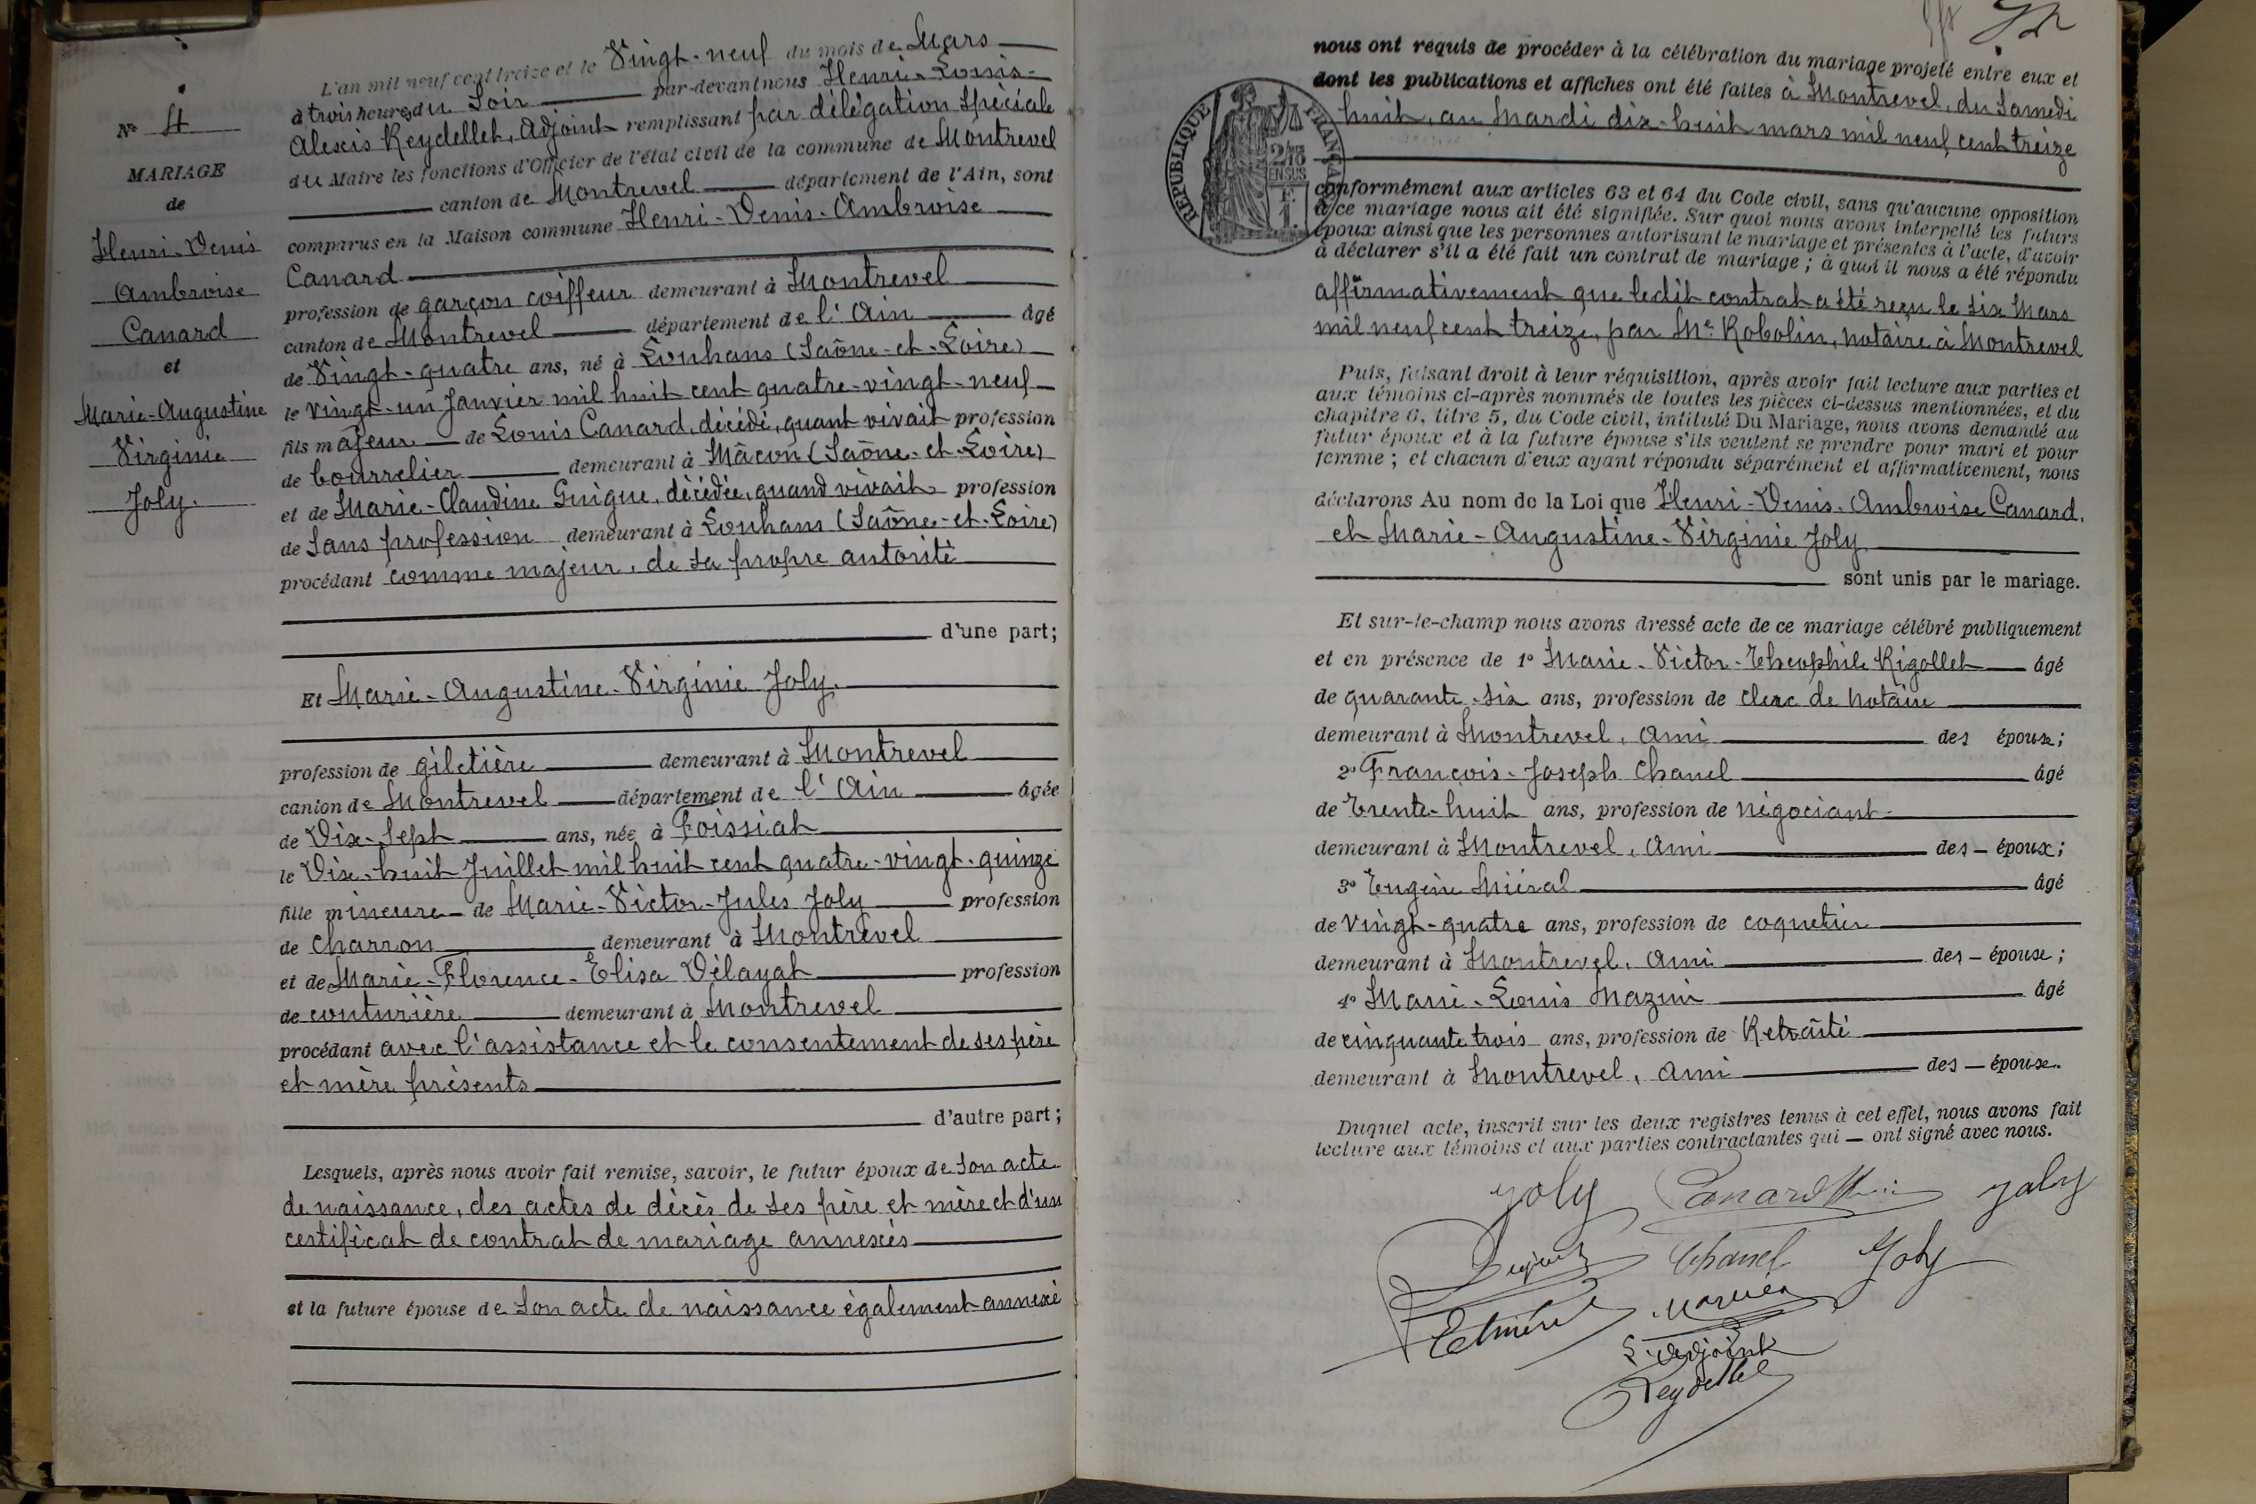 Nº 4
MARIAGE
de
Henri-Denis
Ambroise
Canard
et
Marie-Augustine
Virginie
Joly.
L'an mil neuf cent treize et le Vingt-neuf du mois de Mars
à trois heures du Soir par-devant nous Henri-Louis-
Alexis Reydellet, Adjoint remplissant par délégation Spéciale
du Maire les fonctions d'Officier de l'état civil de la commune de Montrevel
canton de Montrevel département de l'Ain, sont
comparus en la Maison commune Henri-Denis-Ambroise
Canard
profession de garçon coiffeur demeurant à Montrevel
canton de Montrevel département de l'Ain âgé
de Vingt-quatre ans, né à Louhans (Saône-et-Loire)
le vingt-un Janvier mil huit cent quatre-vingt-neuf
fils majeur de Louis Canard, décédé, quant vivait profession
de bourrelier demeurant à Mâcon (Saône-et-Loire)
et de Marie-Claudine Guigue, décédée, quand vivait profession
de Sans profession demeurant à Louhans (Saône-et-Loire)
procédant comme majeur, de sa propre autorité
d'une part;
Et Marie-Augustine-Virginie Joly.
profession de giletière demeurant à Montrevel
canton de Montrevel département de l'Ain âgée
de Dix-Sept ans, née à Foissiat
le Dix-huit Juillet mil huit cent quatre-vingt-quinze
fille mineure de Marie-Victor-Jules Joly profession
de charron demeurant à Montrevel
et de Marie-Florence-Elisa Délayat profession
de couturière demeurant à Montrevel
procédant avec l'assistance et le consentement de ses père
et mère présents
d'autre part;
Lesquels, après nous avoir fait remise, savoir, le futur époux de Son acte
de naissance, des actes de décès de ses père et mère et d'un
certificat de contrat de mariage annexés
et la future épouse de Son acte de naissance également annexé
nous ont requis de procéder à la célébration du mariage projeté entre eux et
dont les publications et affiches ont été faites à Montrevel, du Samedi
huit, au Mardi dix-huit mars mil neuf cent treize
RÉPUBLIQUE FRANÇAISE
conformément aux articles 63 et 64 du Code civil, sans qu'aucune opposition
à ce mariage nous ait été signifiée. Sur quoi nous avons interpellé les futurs
époux ainsi que les personnes autorisant le mariage et présentes à l'acte, d'avoir
à déclarer s'il a été fait un contrat de mariage; à quoi il nous a été répondu
affirmativement que ledit contrat a été reçu le six Mars
mil neuf cent treize, par Me Robolin, notaire à Montrevel
Puis, faisant droit à leur réquisition, après avoir fait lecture aux parties et
aux témoins ci-après nommés de toutes les pièces ci-dessus mentionnées, et du
chapitre 6, titre 5, du Code civil, intitulé Du Mariage, nous avons demandé au
futur époux et à la future épouse s'ils veulent se prendre pour mari et pour
femme; et chacun d'eux ayant répondu séparément et affirmativement, nous
déclarons Au nom de la Loi que Henri-Denis-Ambroise Canard,
et Marie-Augustine-Virginie Joly
sont unis par le mariage.
Et sur-le-champ nous avons dressé acte de ce mariage célébré publiquement
et en présence de 1º Marie-Victor-Théophile Rigollet âgé
de quarante-six ans, profession de clerc de Notaire
demeurant à Montrevel, ami des époux;
2º François-Joseph Chanel âgé
de trente-huit ans, profession de négociant
demeurant à Montrevel, ami des époux;
3º Eugène Miéral âgé
de vingt-quatre ans, profession de coquetier
demeurant à Montrevel, ami des époux;
4º Marie-Louis Mazuir âgé
de cinquante trois ans, profession de Retraité
demeurant à Montrevel, ami des époux.
Duquel acte, inscrit sur les deux registres tenus à cet effet, nous avons fait
lecture aux témoins et aux parties contractantes qui ont signé avec nous.
Joly Canard Joly
Chanel Joly
L'adjoint
Reydellet